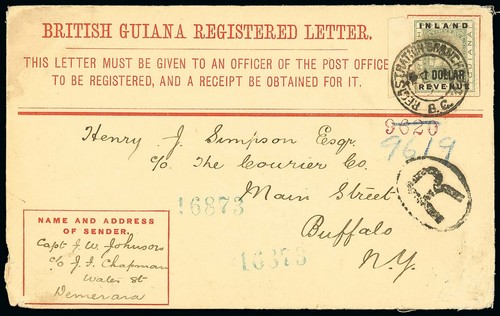 BRITISH GUIANA REGISTERED LETTER.
THIS LETTER MUST BE GIVEN TO AN OFFICER OF THE POST OFFICE
TO BE REGISTERED, AND A RECEIPT BE OBTAINED FOR IT.
INLAND
1 DOLLAR
REVENUE
REGISTRATION BRANCH
B.G.
9620
9619
Henry J. Simpson Esqr.
c/o The Courier Co.
Main Street
Buffalo
N.Y.
R
16873
16373
NAME AND ADDRESS
OF SENDER.
Capt J. W. Johnson
c/o J. I. Chapman
Water St
Demerara